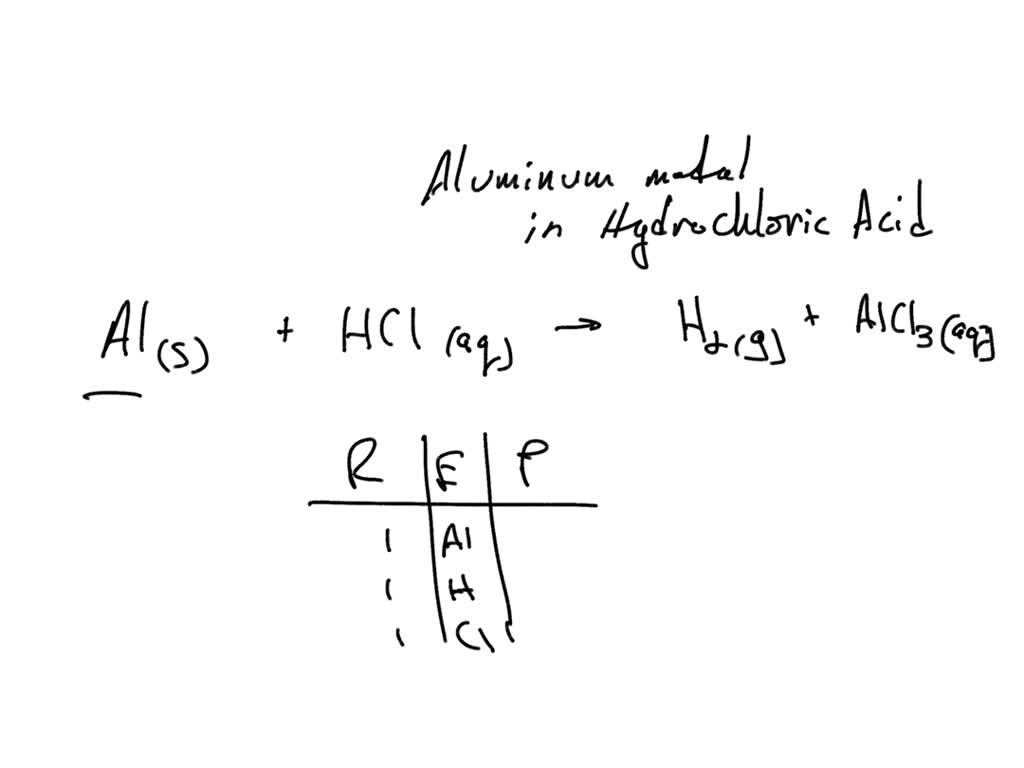 Aluminum metal
in Hydrochloric Acid
Al(s) + HCl(aq) → H₂(g) + AlCl₃(aq)
R E P
1 Al
1 H
1 Cl